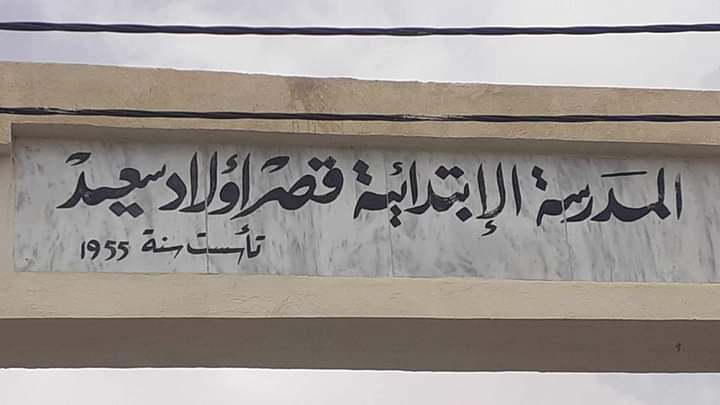 المدرسة الإبتدائية قصر أولاد سعيد
تأسست سنة 1955